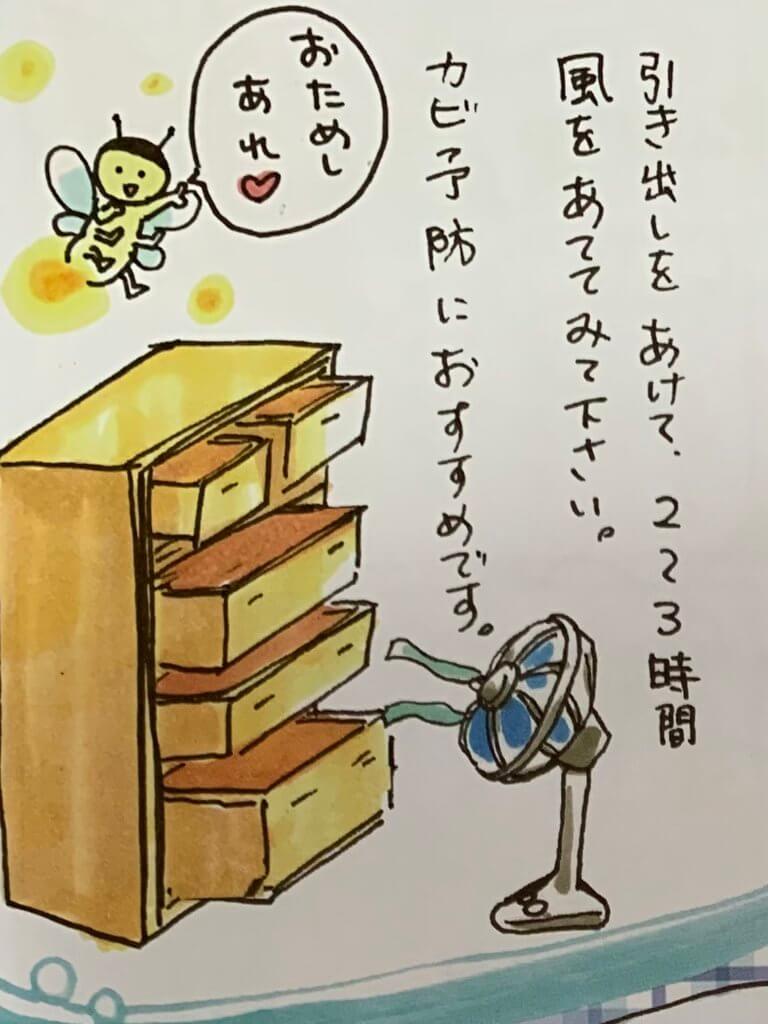 引き出しをあけて、2〜3時間
風をあててみて下さい。
カビ予防におすすめです。
おためし
あれ♡